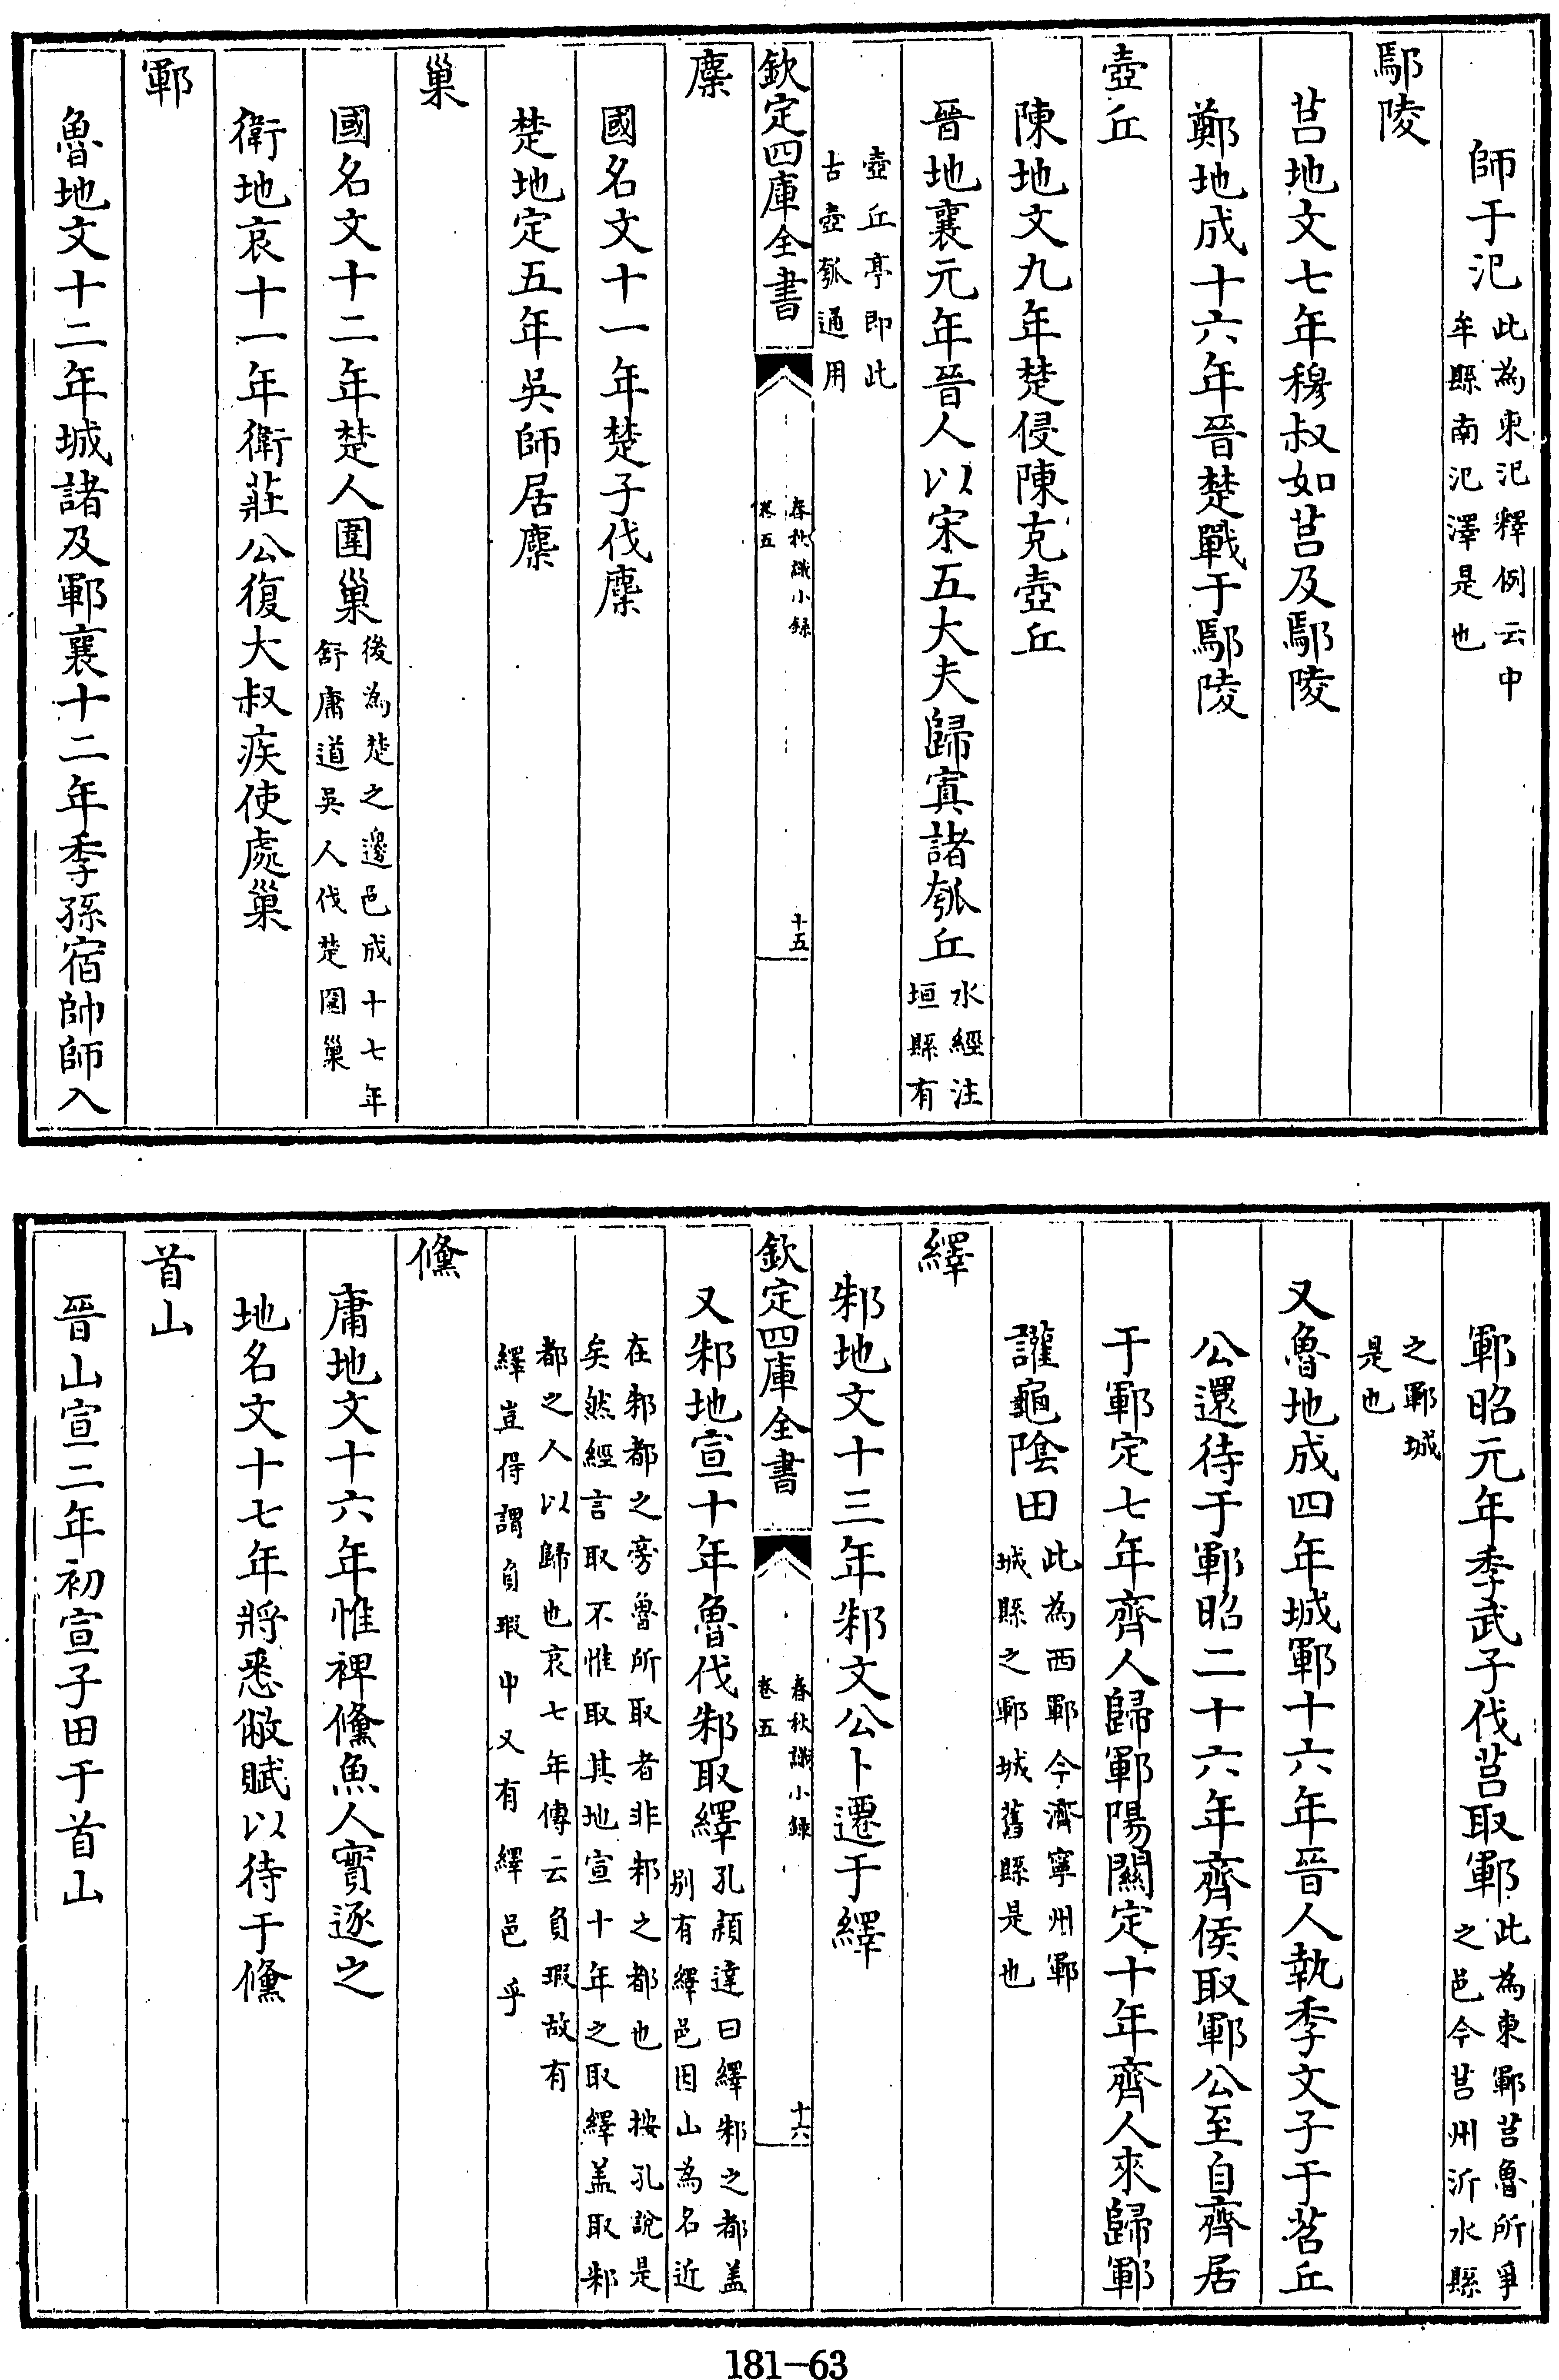 師于氾此為東氾釋例云中牟縣南氾澤是也
鄢陵
莒地文七年穆叔如莒及鄢陵
鄭地成十六年晉楚戰于鄢陵
壺丘
陳地文九年楚侵陳克壺丘
晉地襄元年晉人以宋五大夫歸寘諸瓠丘水經注垣縣有
壺丘亭即此古壺瓠通用
欽定四庫全書 春秋識小録卷五 十五
麇
國名文十一年楚子伐麇
楚地定五年吳師居麇
巢
國名文十二年楚人圍巢後為楚之邊邑成十七年舒庸道吳人伐楚圍巢
衛地哀十一年衛莊公復大叔疾使處巢
鄆
魯地文十二年城諸及鄆襄十二年季孫宿帥師入
鄆昭元年季武子伐莒取鄆此為東鄆莒魯所爭之邑今莒州沂水縣
之鄆城是也
又魯地成四年城鄆十六年晉人執季文子于苕丘
公還待于鄆昭二十六年齊侯取鄆公至自齊居
于鄆定七年齊人歸鄆陽關定十年齊人來歸鄆
讙龜陰田此為西鄆今濟寧州鄆城縣之鄆城舊縣是也
繹
邾地文十三年邾文公卜遷于繹
欽定四庫全書 春秋識小録卷五 十六
又邾地宣十年魯伐邾取繹孔頴達曰繹邾之都盖别有繹邑因山為名近
在邾都之旁魯所取者非邾之都也 按孔說是矣然經言取不惟取其地宣十年之取繹盖取邾
都之人以歸也哀七年傳云負瑕故有繹豈得謂負瑕中又有繹邑乎
儵
庸地文十六年惟裨儵魚人實逐之
地名文十七年將悉敝賦以待于儵
首山
晉山宣二年初宣子田于首山
181-63